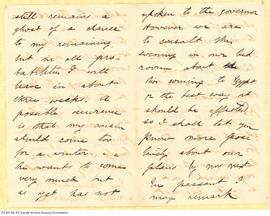 still remains a
ghost of a chance
to my remaining
but in all pro-
babilities I will
leave in about
three weeks. A
possible occurence
is that my cousin
should come too
for a winter.
he wants to come
very much but
as yet has not
spoken to the governor
However we are
to consult this
evening in our bed
rooms about
his coming to Egypt
& the best way it
should be effected
so I shall let you
know more posi-
tively about our
plans by my next
En passant I
may remark